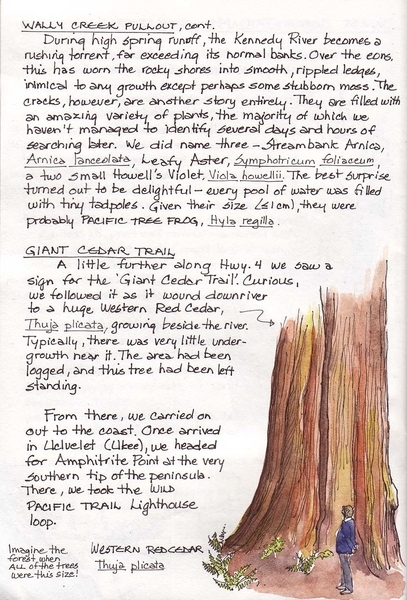 WALLY CREEK PULLOUT, cont.
During high spring runoff, the Kennedy River becomes a
rushing torrent, far exceeding its normal banks. Over the eons,
this has worn the rocky shores into smooth, rippled ledges,
inimical to any growth except perhaps some stubborn moss. The
cracks, however, are another story entirely. They are filled with
an amazing variety of plants, the majority of which we
haven't managed to identify several days and hours of
searching later. We did name three – Streambank Arnica,
Arnica lanceolata, Leafy Aster, Symphotricum foliaceum,
a two small Howell's Violet, Viola howellii. The best surprise
turned out to be delightful – every pool of water was filled
with tiny tadpoles. Given their size (≤1cm), they were
probably PACIFIC TREE FROG, Hyla regilla.
GIANT CEDAR TRAIL
A little further along Hwy. 4 we saw a
sign for the 'Giant Cedar Trail'. Curious,
we followed it as it wound downriver
to a huge Western Red Cedar,
Thuja plicata, growing beside the river.
Typically, there was very little under-
growth near it. The area had been
logged, and this tree had been left
standing.
From there, we carried on
out to the coast. Once arrived
in Ucluelet (Ukee), we headed
for Amphitrite Point at the very
southern tip of the peninsula.
There, we took the WILD
PACIFIC TRAIL Lighthouse
loop.
Imagine the
forest when
ALL of the trees
were this size!
WESTERN REDCEDAR
Thuja plicata